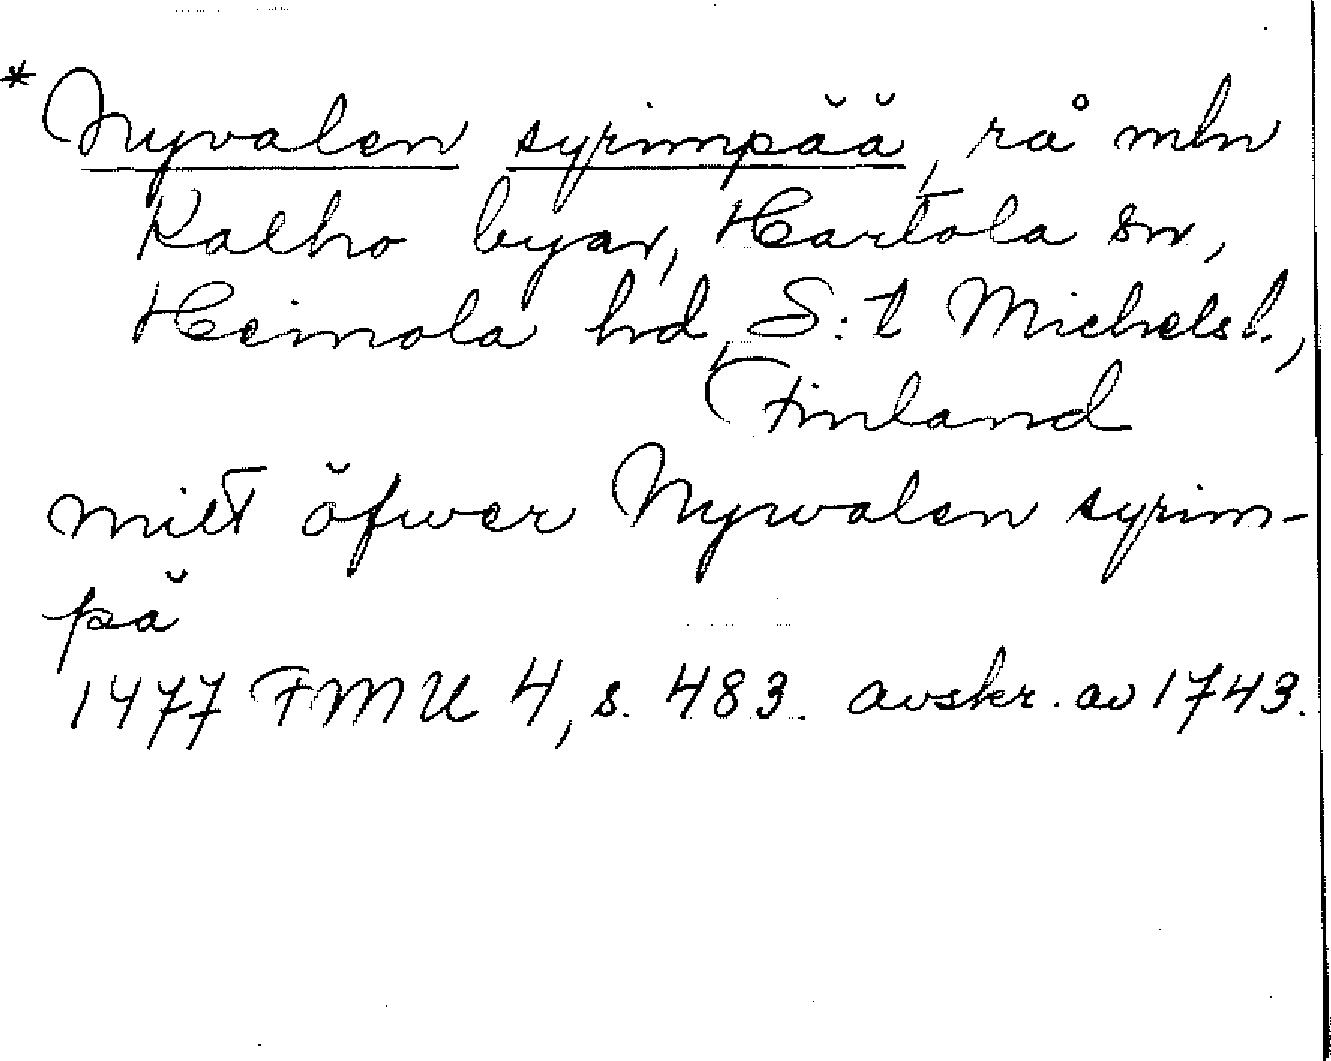 * Nyvalen syrimpää, rå mln
Kalho byar, Hartola sn,
Heinola hd, S:t Michels l.,
Finland
mitt öfwer Nywalen syrim-
pä
1477 FMU 4, s. 483. avskr. av 1743.